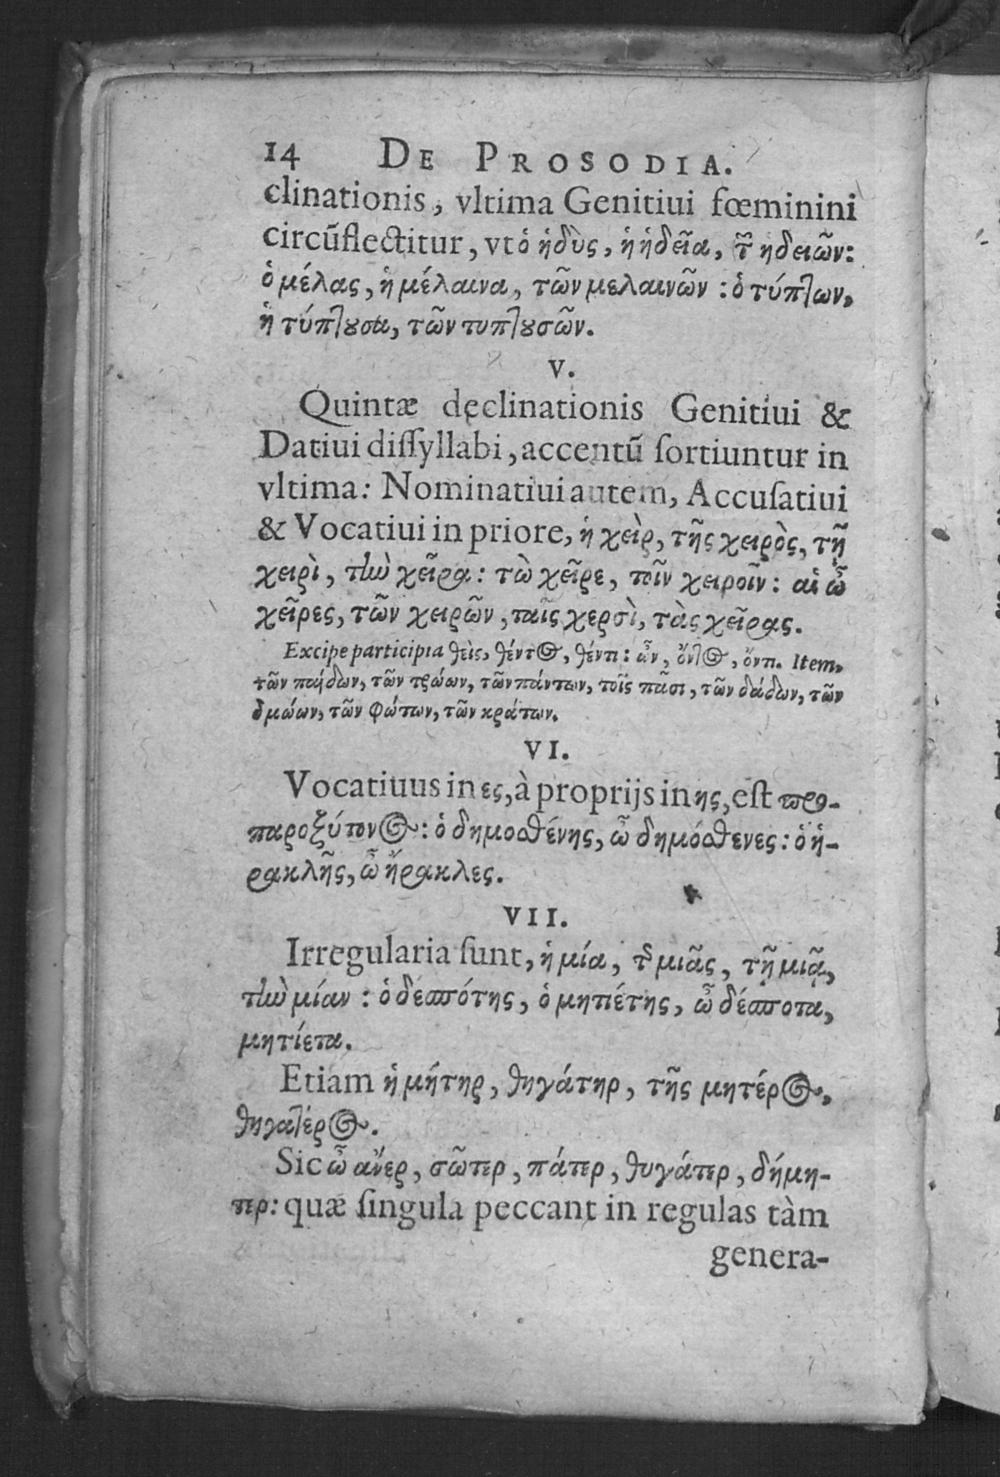 14 DE PROSODIA.
clinationis, vltima Genitiui fœminini
circũflectitur, vt ὁ ἡδὺς, ἡ ἡδεῖα, τῶν ἡδειῶν:
ὁ μέλας, ἡ μέλαινα, τῶν μελαινῶν : ὁ τύπτων,
ἡ τύπτουσα, τῶν τυπτουσῶν.
V.
Quintæ declinationis Genitiui &
Datiui diſſyllabi, accentũ ſortiuntur in
vltima: Nominatiui autem, Accuſatiui
& Vocatiui in priore, ἡ χεὶρ, τῆς χειρὸς, τῇ
χειρὶ, τὴν χεῖρα: τὼ χεῖρε, τοῖν χειροῖν: αἱ ὦ
χεῖρες, τῶν χειρῶν, ταῖς χερσὶ, τὰς χεῖρας.
Excipe participia θεὶς, θέντος, θέντι: ὢν, ὄντος, ὄντι. Item,
τῶν παίδων, τῶν τρώων, τῶν πάντων, τοῖς πᾶσι, τῶν δάδων, τῶν
δμώων, τῶν φώτων, τῶν κράτων.
VI.
Vocatiuus in ες, à proprijs in ης, eſt προ-
παροξύτονος: ὁ δημοσθένης, ὦ δημόσθενες: ὁ ἡ-
ρακλῆς, ὦ ἥρακλες.
VII.
Irregularia ſunt, ἡ μία, τῆς μιᾶς, τῇ μιᾷ,
τὴν μίαν : ὁ δεσπότης, ὁ μητιέτης, ὦ δέσποτα,
μητίετα.
Etiam ἡ μήτηρ, θηγάτηρ, τῆς μητέρος,
θηγατέρος.
Sic ὦ ἄνερ, σῶτερ, πάτερ, θυγάτερ, δήμη-
τερ: quæ ſingula peccant in regulas tàm
genera-